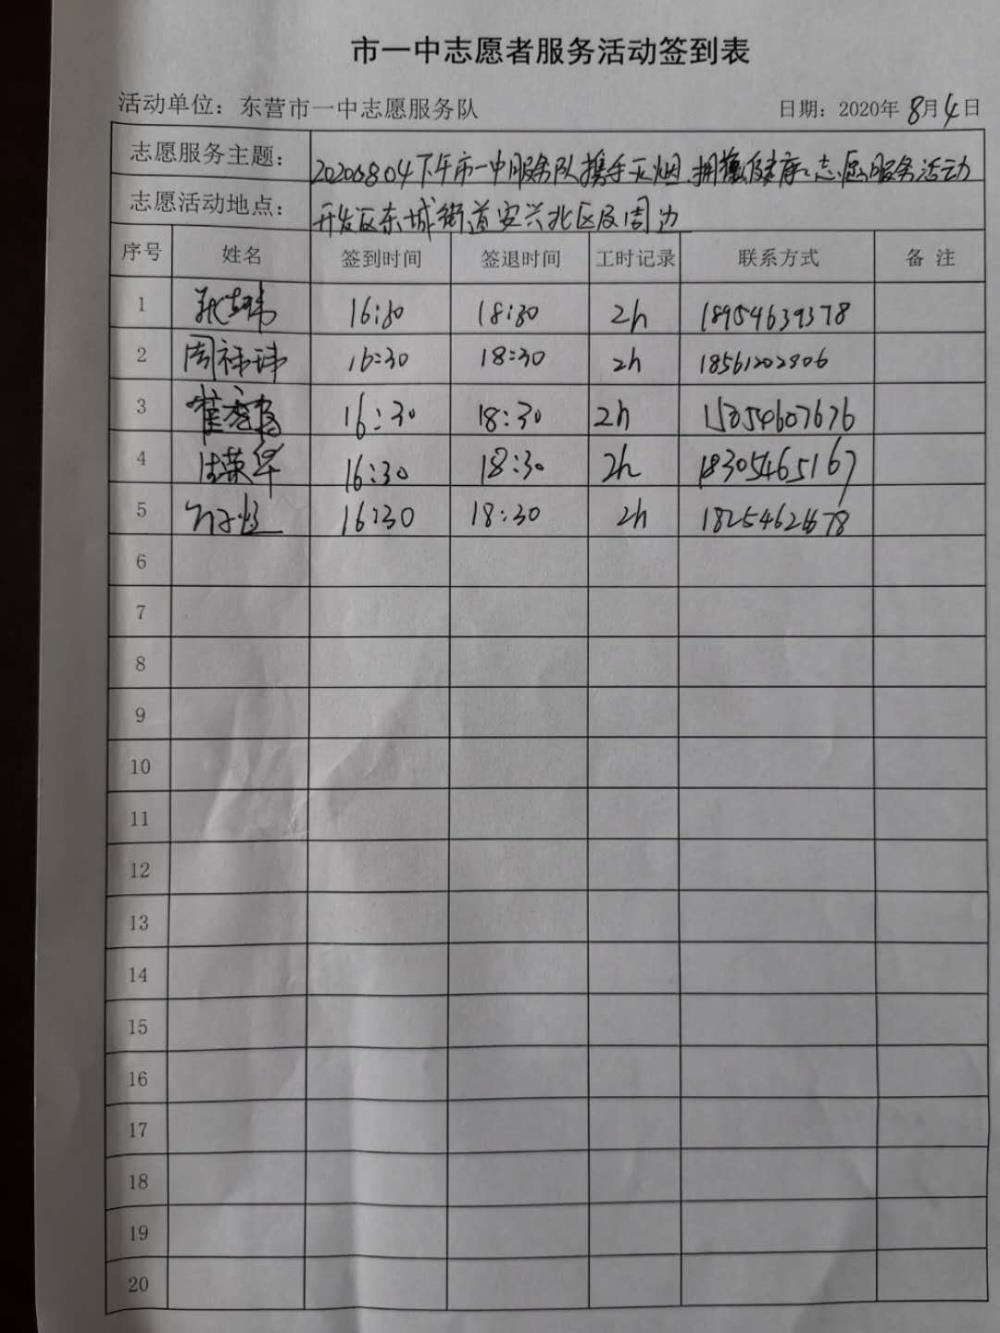 市一中志愿者服务活动签到表
活动单位：东营市一中志愿服务队 日期：2020年8月4日
志愿服务主题： 20200804下午市一中服务队携手无烟,拥抱健康志愿服务活动
志愿活动地点： 开发区东城街道安兴北区及周边
序号 姓名 签到时间 签退时间 工时记录 联系方式 备 注
1 16:30 18:30 2h 18954639378
2 周祎玮 16:30 18:30 2h 18561202306
3 16:30 18:30 2h 15054607676
4 16:30 18:30 2h 18305465167
5 16:30 18:30 2h
6
7
8
9
10
11
12
13
14
15
16
17
18
19
20